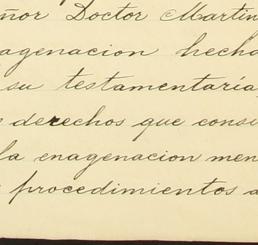 ñor Doctor Martin
agenacion hecha
su testamentaría,
derechos que consi
la enagenacion men
procedimientos a